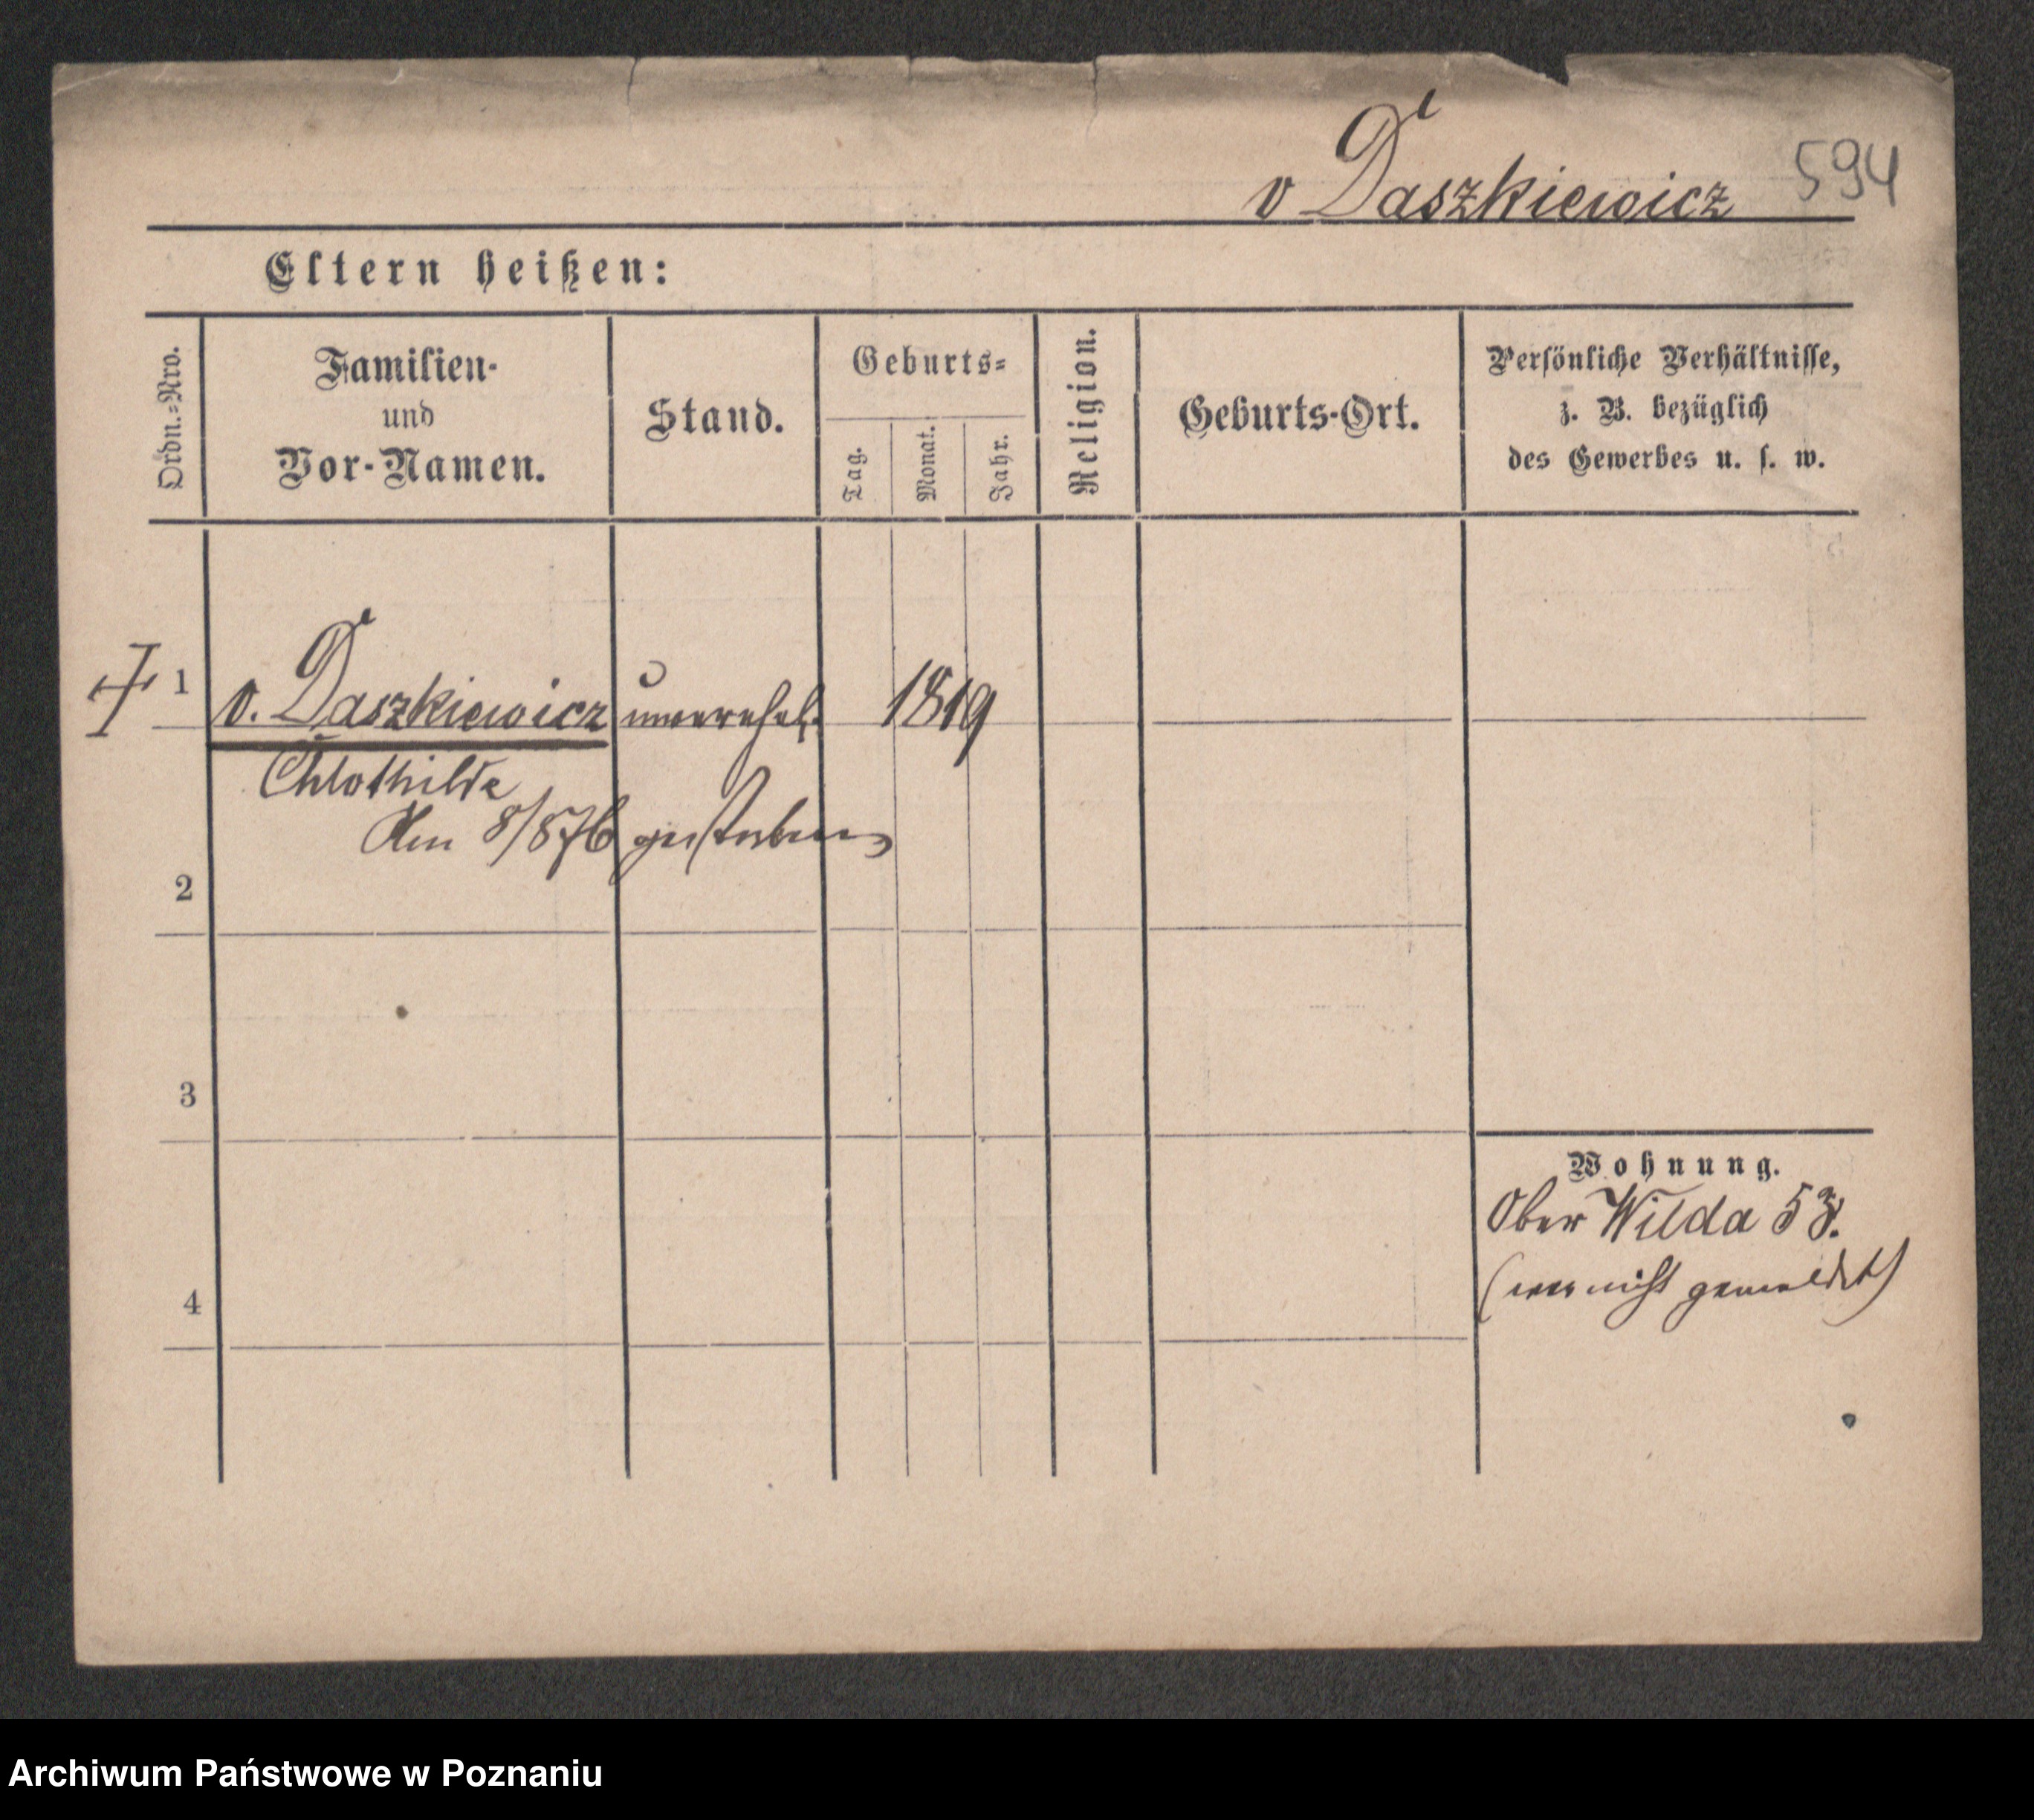 v Daszkiewicz 594
Eltern heißen:
Ordn.=Nro.
Familien-
und
Vor-Namen.
Stand.
Geburts=
Tag.
Monat.
Jahr.
Religion.
Geburts-Ort.
Persönliche Verhältnisse,
z. B. bezüglich
des Gewerbes u. s. w.
1 v. Daszkiewicz unverehel. 1819
Chlothilde
8/876 gestorben
2
3
4
Wohnung.
Ober Wilda 58.
(war nicht gemeldet)
Archiwum Państwowe w Poznaniu